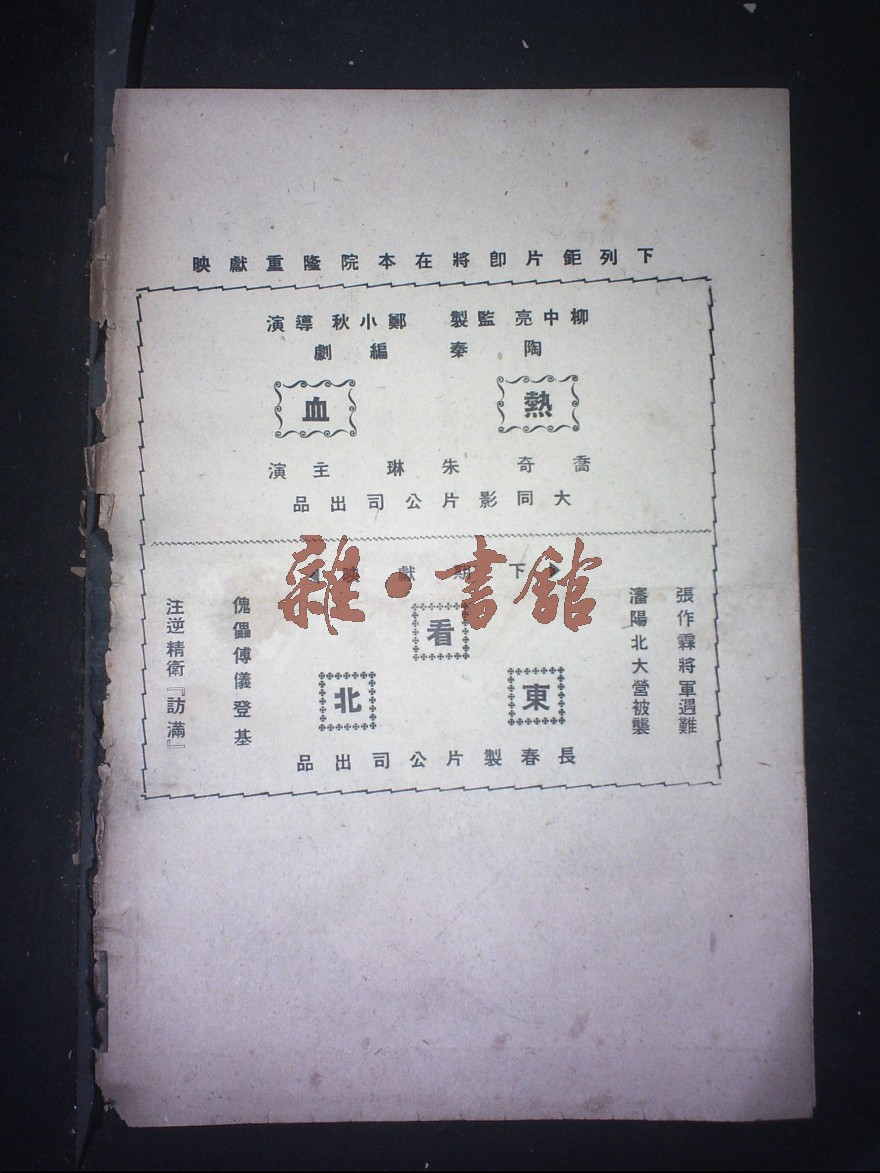 下列鉅片卽將在本院隆重獻映
柳中亮監製 鄭小秋導演
陶秦編劇
熱血
喬奇 朱琳 主演
大同影片公司出品
下期獻映
張作霖將軍遇難
瀋陽北大營被襲
看東北
傀儡傅儀登基
注逆精衛『訪滿』
長春製片公司出品
雜·書館